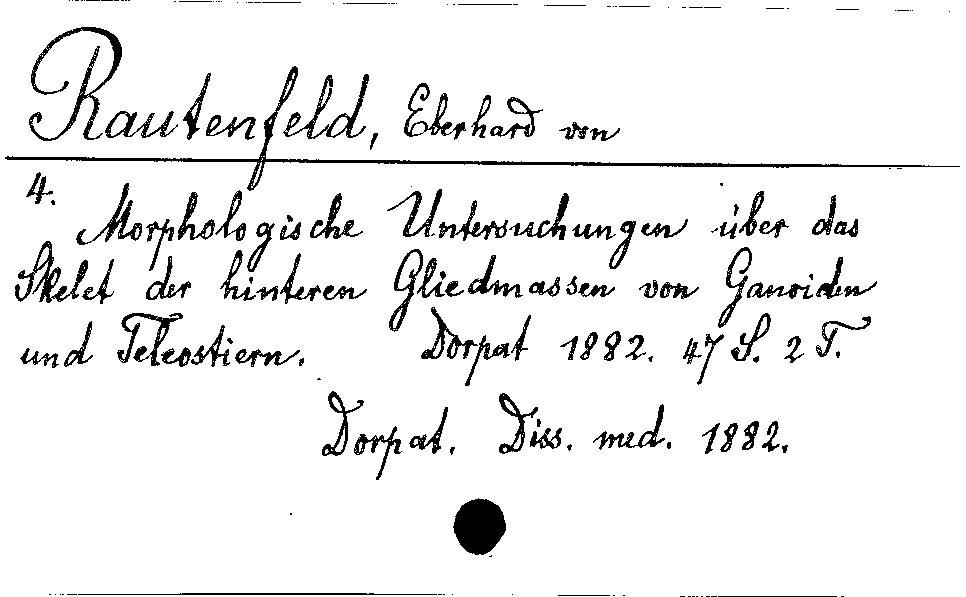 Rautenfeld, Eberhard von
4.
Morphologische Untersuchungen über das
Skelet der hinteren Gliedmassen von Ganoiden
und Teleostiern. Dorpat 1882. 47 S. 2 T.
Dorpat. Diss. med. 1882.